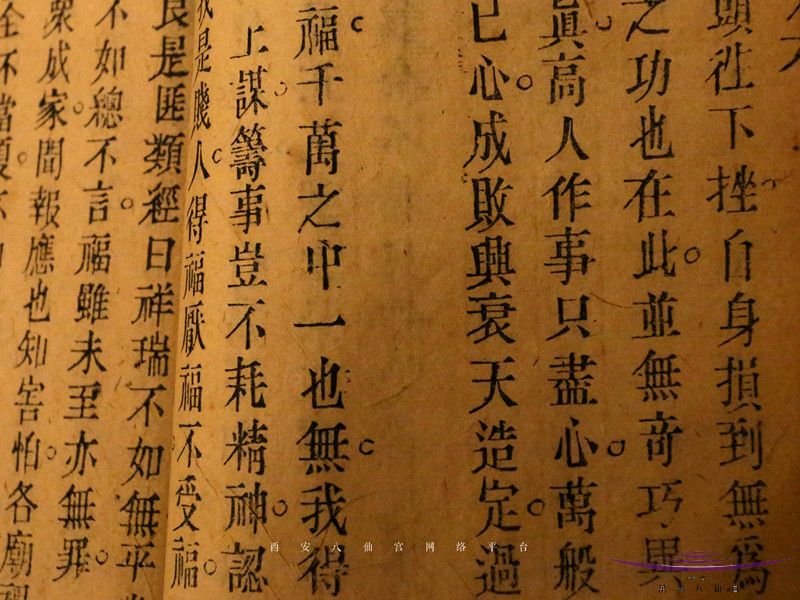 頭徃下挫。自身損到無爲
之功也在此。並無奇巧異
眞高人作事只盡心。萬般
已心。成敗興衰天造定。過
福。千萬之中一也。無我得
上謀。籌事豈不耗精神。認
我是賤人。得福厭福不受福。
良是匪類經曰祥瑞不如無平
不如總不言。福雖未至亦無罪。
衆成家。聞報應也知害怕。各廟
全不當
西安八仙宫网络平台